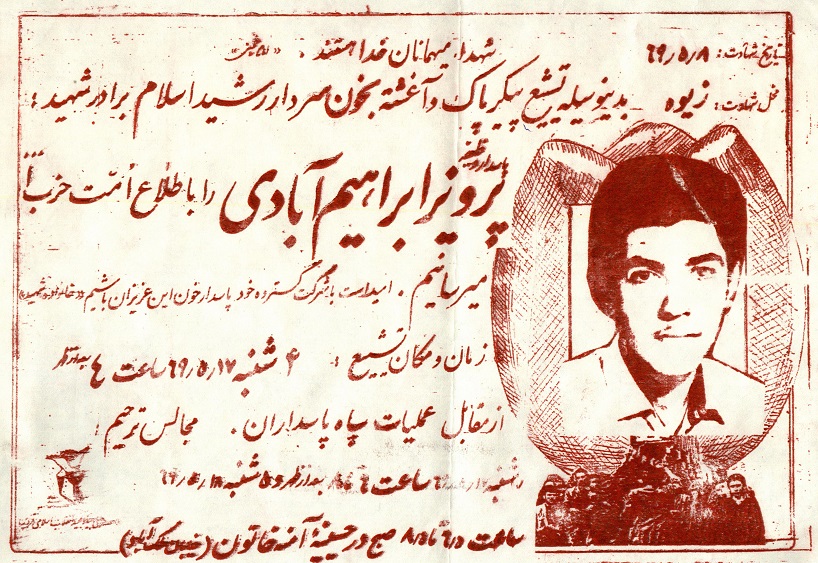 شهداء میهمانان خدا هستند.
تاریخ شهادت: ۶۹/۵/۸
محل شهادت: زیوه
بدینوسیله تشیع پیکر پاک و آغشته بخون سردار رشید اسلام برادر شهید:
پاسدار وظیفه
پرویز ابراهیم آبادی را باطلاع امت حزب ا...
میرسانیم. امید است با شرکت گسترده خود پاسدار خون این عزیزان باشیم «خانواده شهید»
زمان و مکان تشیع: ۴ شنبه ۶۹/۵/۱۷ ساعت ٤ بعد از ظهر
از مقابل عملیات سپاه پاسداران. مجالس ترحیم:
شنبه ساعت ٦ بعد از ظهر و ۵ شنبه ۶۹/۵/۱۸
ساعت تا صبح در حسینیه آمنه خاتون